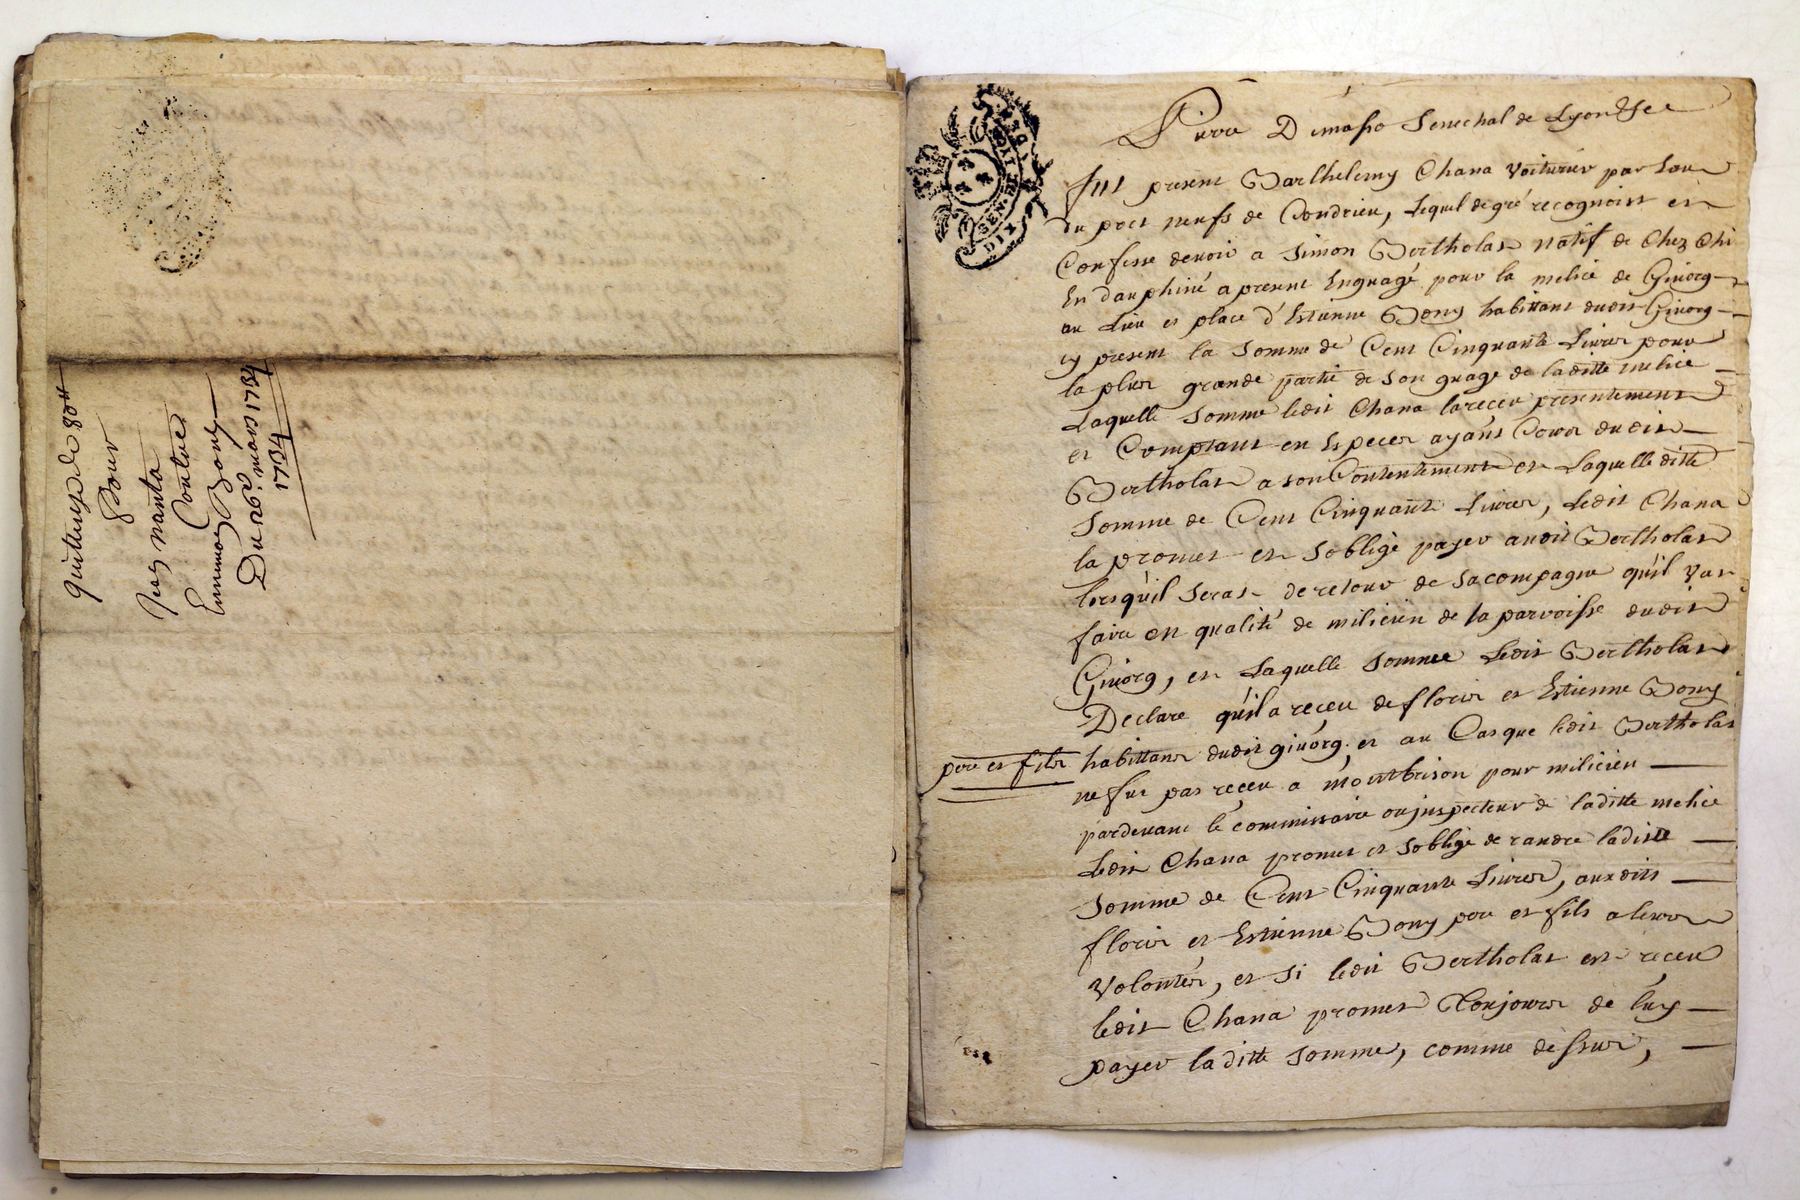 quittance de 80 tt
Pour
Jean nanta
Contre
Emmoz Bony
Du 26e. mars 1734
1734
GEN. DE LYON
DIX DEN.
Pierre Dimasso Senechal de Lyon &c
Fut present Barthelemy Chana Voiturier par Eau
du port neufs de Condrieu, Lequel de gré recognoist et
Confesse devoir a Simon Bertholat natif de Chez Chi
En dauphiné a present Enguagé pour la melice de Givorg
au Lieu et place d'Estienne Bony habittant dudit Givorg
cy present la Somme de Cent Cinquante Livres pour
la plus grande partie de Son guage de laditte melice
Laquelle Somme ledit Chana la receu presentement
et Comptant en Especes ayant Cours dudit
Bertholat a son Contentement et Laquelle ditte
Somme de Cent Cinquante Livres, Ledit Chana
la promet et Soblige payer audit Bertholat
lorsquil Serat de retour de Sa compagne qu'il vat
faire en qualité de milicien de la parroisse dudit
Givorg, et Laquelle Somme Ledit Bertholat
Declare qu'il a receu de floris et Estienne Bony
pere et fils habittans dudit givorg. et au Cas que ledit Bertholat
ne fut pas receu a montbrison pour milicien
pardevant le commissaire ou jnspecteur de laditte melice
Ledit Chana promet et Soblige de randre laditte
Somme de Cent Cinquante Livres, auxdits
floris et Estienne Bony pere et fils a leurs
Volontés, et Si ledit Bertholat est receu
ledit Chana promet Toujours de luy
payer laditte Somme, comme dessus,